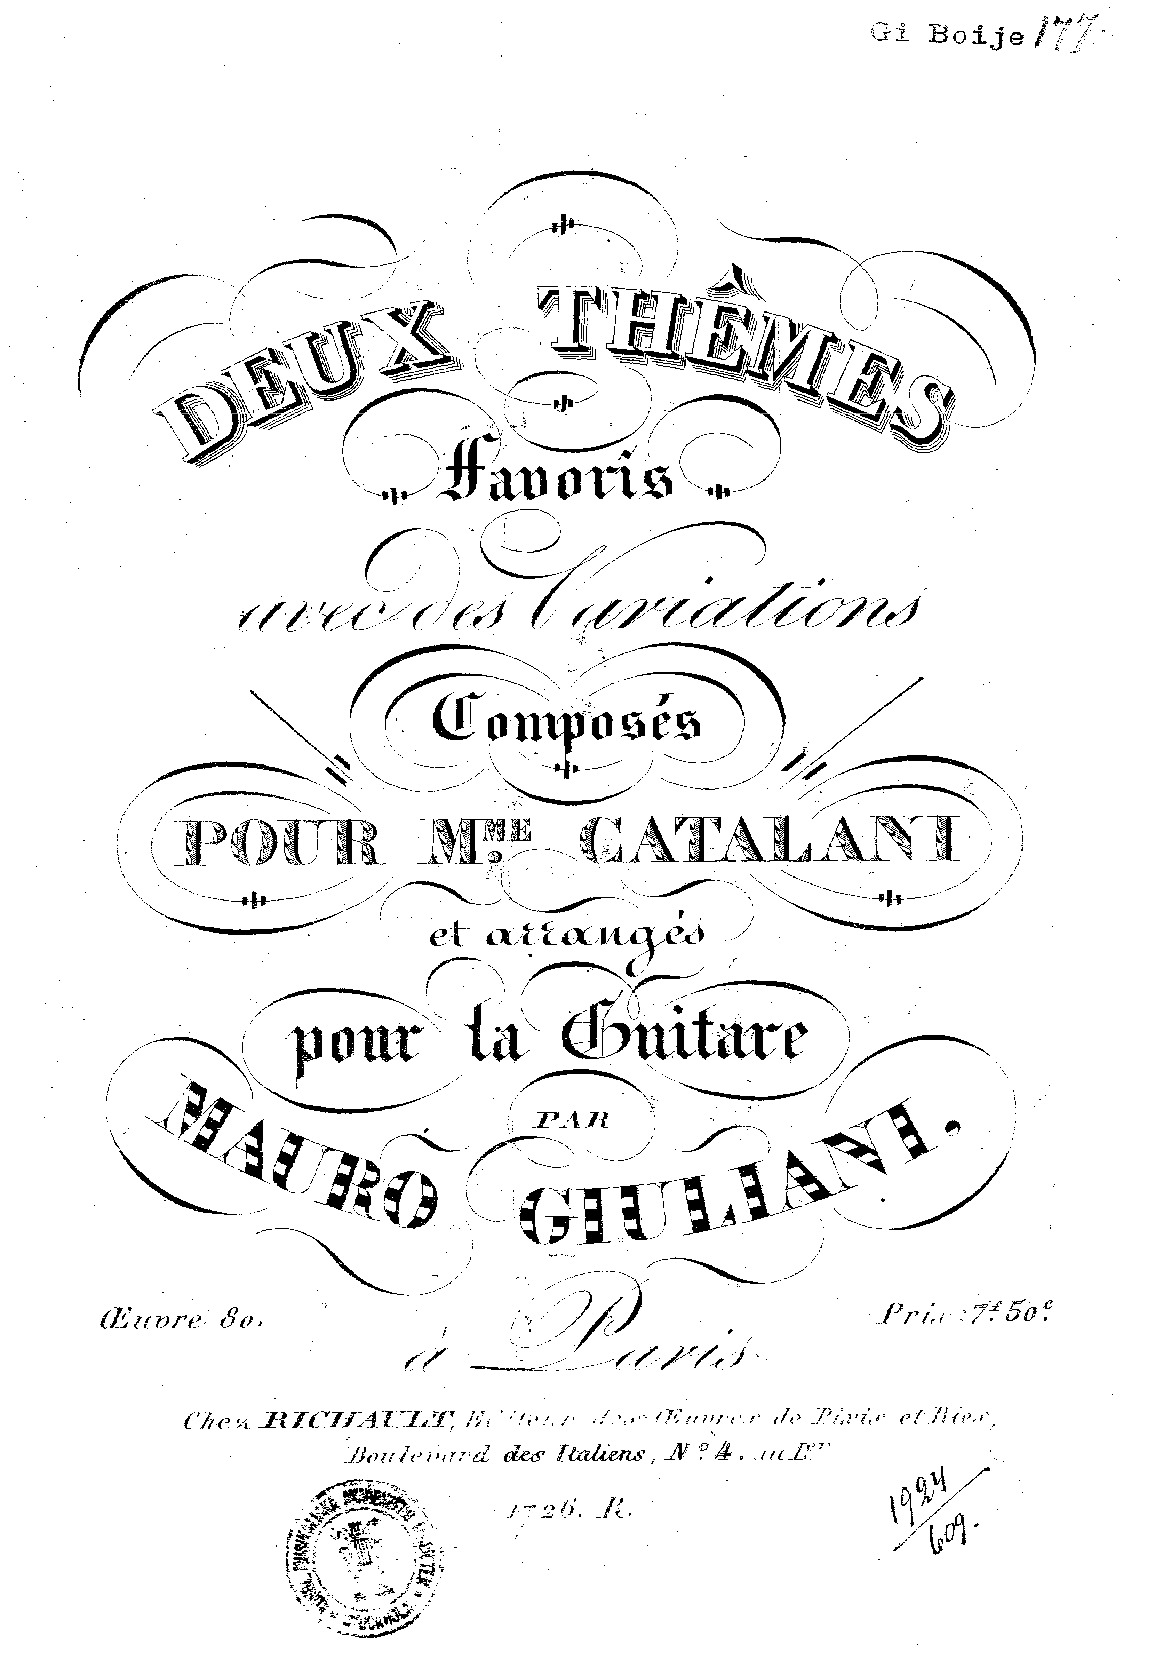 Gi Boije 177.
DEUX THÊMES
Favoris
avec des Variations
Composés
POUR M.ME CATALANI
et arrangés
pour la Guitare
PAR
MAURO GIULIANI.
Œuvre 80.
Prix: 7.f 50.c
à Paris
Chez RICHAULT, Editeur des Œuvres de Pixis et Ries,
Boulevard des Italiens, N.o 4. au 1.er
1726. R.
1924
609.